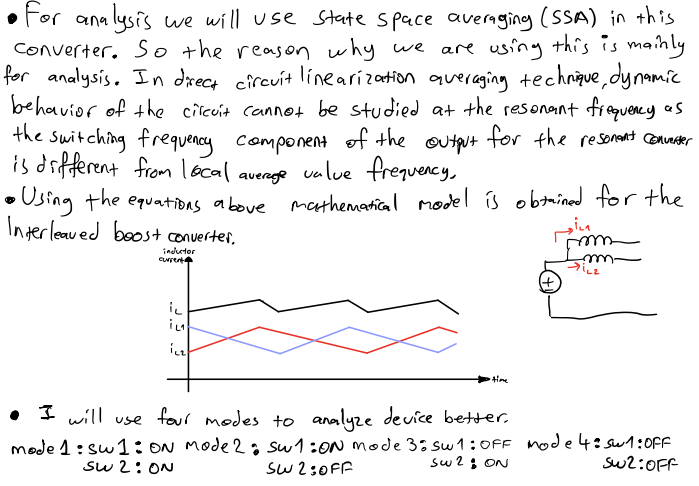 • For analysis we will use state space averaging (SSA) in this
converter. So the reason why we are using this is mainly
for analysis. In direct circuit linearization averaging technique, dynamic
behavior of the circuit cannot be studied at the resonant frequency as
the switching frequency component of the output for the resonant converter
is different from local average value frequency.
• Using the equations above mathematical model is obtained for the
Interleaved boost converter.
inductor
current
iL
iL1
iL2
time
iL1
iL2
• I will use four modes to analyze device better.
mode 1: sw1: ON mode 2: sw1: ON mode 3: sw1: OFF mode 4: sw1: OFF
sw2: ON sw2: OFF sw2: ON sw2: OFF